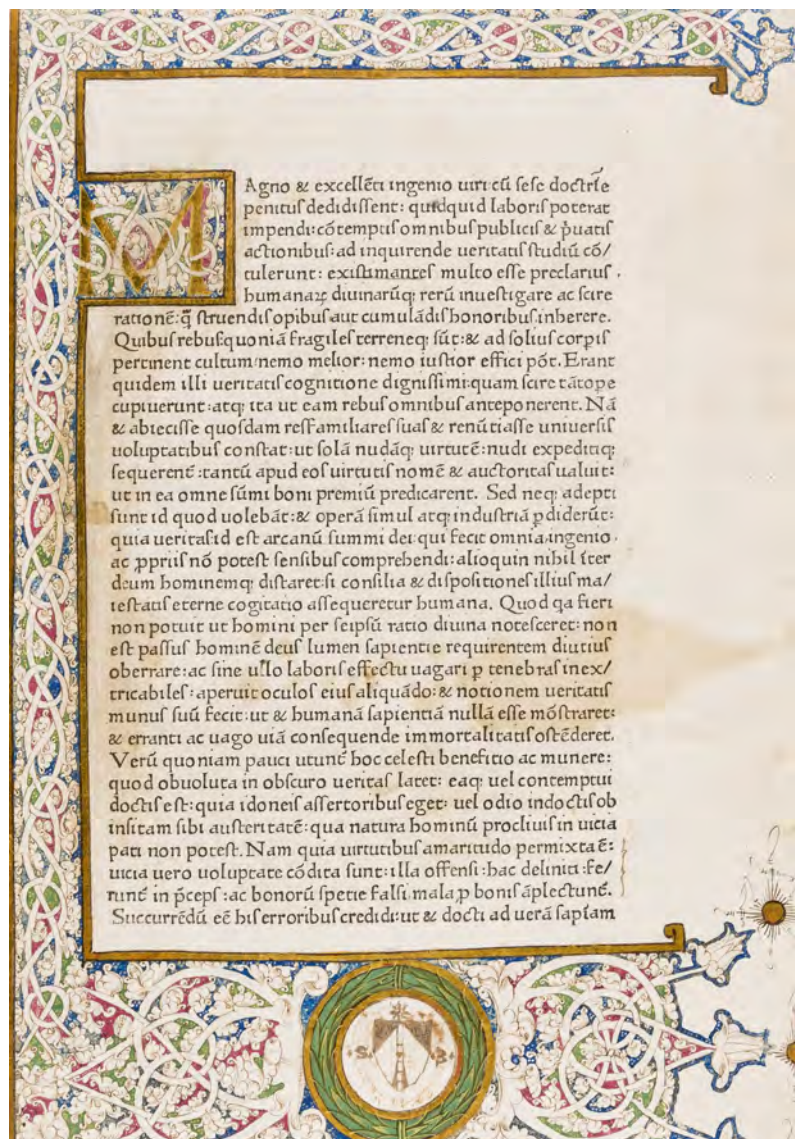 MAgno & excellẽti ingenio uiri cũ sese doctrīe
penitus dedidissent: quidquid laboris poterat
impendi: cõtemptis omnibus publicis & p̃uatis
actionibus: ad inquirende ueritatis studiũ cõ/
tulerunt: existimantes multo esse preclarius.
humanaꝝ diuinarũq; rerũ inuestigare ac scire
rationẽ: q̃ struendis opibus aut cumulãdis honoribus inherere.
Quibus rebus quoniã fragiles terreneq; sũt: & ad solius corpis
pertinent cultum: nemo melior: nemo iustior effici põt. Erant
quidem illi ueritatis cognitione dignissimi: quam scire tãtoꝑe
cupiuerunt: atq; ita ut eam rebus omnibus anteponerent. Nã
& abiecisse quosdam res familiares suas & renũtiasse uniuersis
uoluptatibus constat: ut solã nudãq; uirtutẽ: nudi expeditiq;
sequerent̃: tantũ apud eos uirtutis nomẽ & auctoritas ualuit:
ut in ea omne sũmi boni premiũ predicarent. Sed neq; adepti
sunt id quod uolebãt: & operã simul atq; industriã ꝑdiderũt:
quia ueritas id est arcanũ summi dei: qui fecit omnia, ingenio.
ac ꝓpriis nõ potest sensibus comprehendi: alioquin nihil ĩter
deum hominemq; distaret: si consilia & dispositiones illius ma/
iestatis eterne cogitatio assequeretur humana. Quod qa fieri
non potuit ut homini per seipsũ ratio diuina notesceret: non
est passus hominẽ deus lumen sapientie requirentem diutius
oberrare: ac sine ullo laboris effectu uagari ꝑ tenebras inex/
tricabiles: aperuit oculos eius aliquãdo: & notionem ueritatis
munus suũ fecit: ut & humanã sapientiã nullã esse mõstraret:
& erranti ac uago uiã consequende immortalitatis ostẽderet.
Verũ quoniam pauci utunt̃ hoc celesti beneficio ac munere:
quod obuoluta in obscuro ueritas latet: eaq; uel contemptui
doctis est: quia idoneis assertoribus eget: uel odio indoctis ob
insitam sibi austeritatẽ: qua natura hominũ procliuis in uicia
pati non potest. Nam quia uirtutibus amaritudo permixta ẽ:
uicia uero uoluptate cõdita sunt: illa offensi: hac deliniti: fe/
runt̃ in p̃ceps: ac bonorũ specie falsi mala ꝓ bonis ãplectunt̃.
Succurrẽdũ eẽ his erroribus credidi: ut & docti ad uerã sapĩam
S B